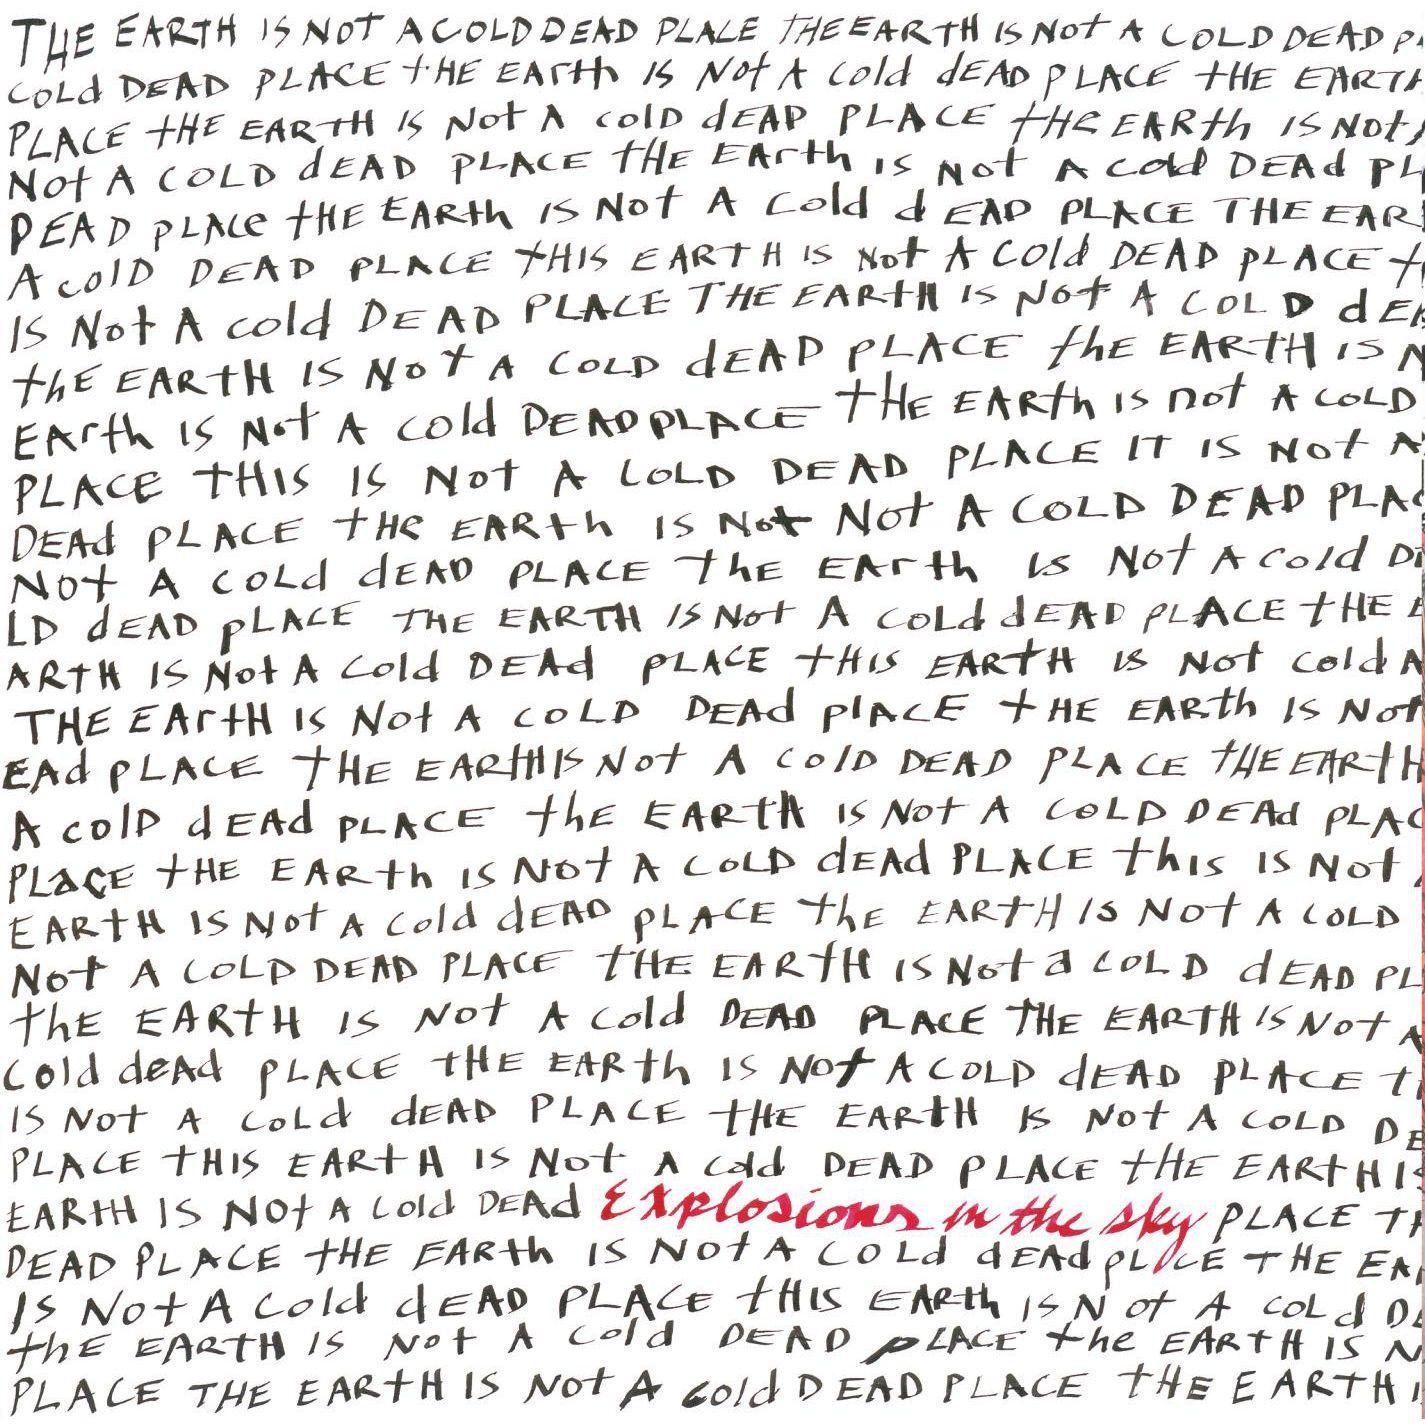 THE EARTH IS NOT A COLD DEAD PLACE THE EARTH IS NOT A COLD DEAD
COLd DEAD PLACE tHE EArth IS Not A cold dEAD PLACE tHE EARTH
PLACE tHE EARTH IS Not A colD dEAD PLACE tHe EARth IS Not
Not A COLD dEAD PLACE tHE EArth IS Not A cold DEAd PL
DEAD pLACe tHE EARth IS Not A Cold dEAD PLACE THE EAR
A colD DEAD PLACE tHIS EARTH IS Not A COld DEAD pLACE t
IS Not A cold DEAD PLACE THE EARtH IS Not A COLD dEA
thE EARtH IS NoT A COLD dEAD pLACE the EARTH IS N
EArth IS Not A cold DEAD PLACE tHE EARth IS not A coLD
PLACE tHIS IS Not A COLD DEAD PLACE IT IS Not A
DEAd PLACE tHe EARth IS Not Not A COLD DEAD PLAC
Not A COLd dEAD PLACE the EArth IS Not A cold D
LD dEAD pLACE THE EARTH IS Not A COLd dEAD pLACE tHE E
ARTH IS Not A Cold DEAd PLACE tHIS EARtH IS Not cold A
THE EArtH IS Not A COLD DEAd plACE tHE EARth IS Not
EAd pLACE tHE EARtH IS Not A colD DEAD PLACE tHE EARtH
A colD dEAd pLACE thE EARTH IS Not A COLD DEAd PLAC
PLaCE tHE EARth IS Not A coLD dEAd PLACE thIS IS Not
EARtH IS Not A Cold dEAD pLACE the EARTH IS Not A COLD
Not A COLD DEAD PLACE tHE EARtH IS Not a COLD dEAD PL
thE EARtH IS Not A cold DEAD PLACE THE EARTH IS Not A
Cold deAd pLACE tHE EARth IS Not A COLD dEAD PLACE t
IS Not A COLd dEAD PLACE tHE EARtH IS Not A COLD DE
PLACE tHIS EARtH IS Not A cold DEAD PLACE tHE EARtH IS
EARtH IS Not A Cold DEAd Explosions in the sky PLACE
DEAD PLACE tHE EARth IS Not A COLd dEAd PLACE THE EA
IS Not A Cold dEAD PLACE tHIS EARth IS Not A COLd
thE EARtH IS Not A Cold DEAD pLACE the EARtH IS N
PLACE tHE EARtH IS Not A Cold DEAD PLACE tHE EARTH